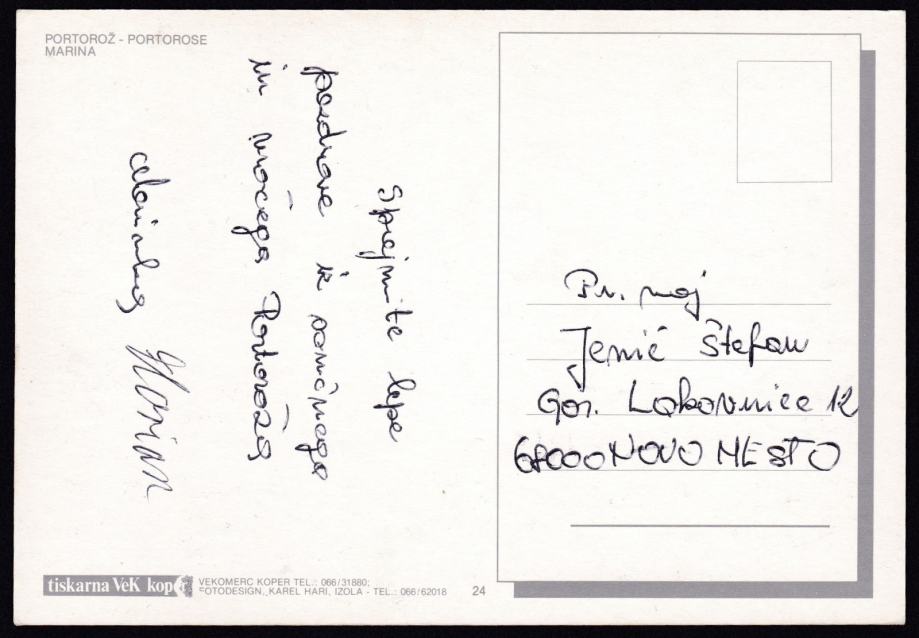 PORTOROŽ - PORTOROSE
MARINA
Sprejmite lepe
pozdrave iz sončnega
in vročega Portoroža
Marjan
Pr. noj
Jenič Štefan
Gor. Lakovnice 12
68000 NOVO MESTO
tiskarna VeK koper
VEKOMERC KOPER TEL.: 066/31880;
FOTODESIGN, KAREL HARI, IZOLA - TEL.: 066/62018
24